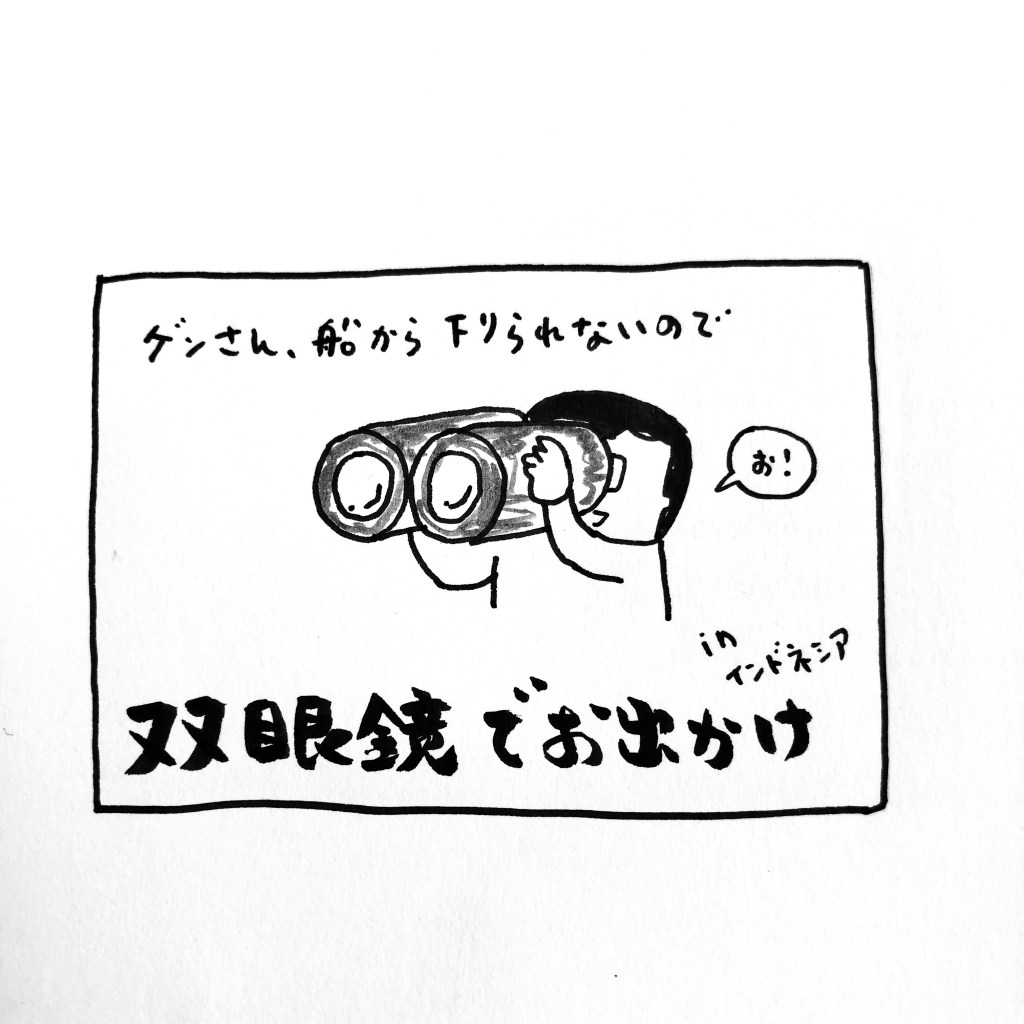 ゲンさん、船から下りられないので
お!
in
インドネシア
双眼鏡でお出かけ